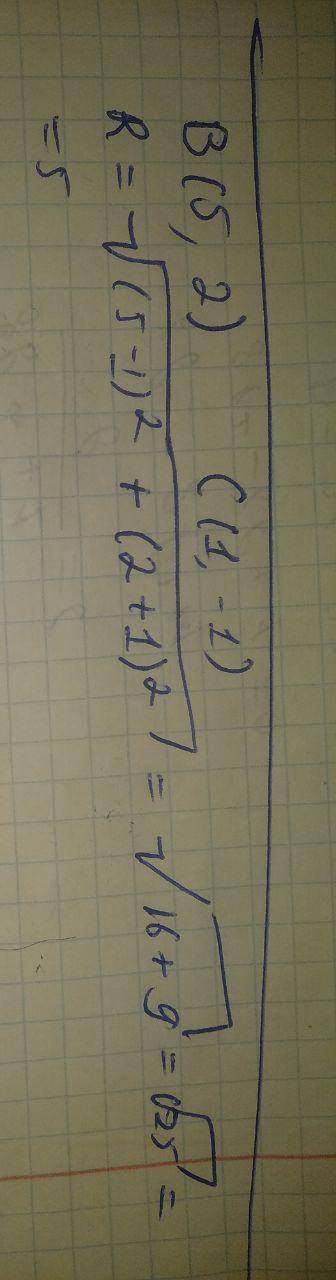 B(5, 2) C(1, -1)
R = √(5-1)² + (2+1)² = √16+9 = √25 =
= 5